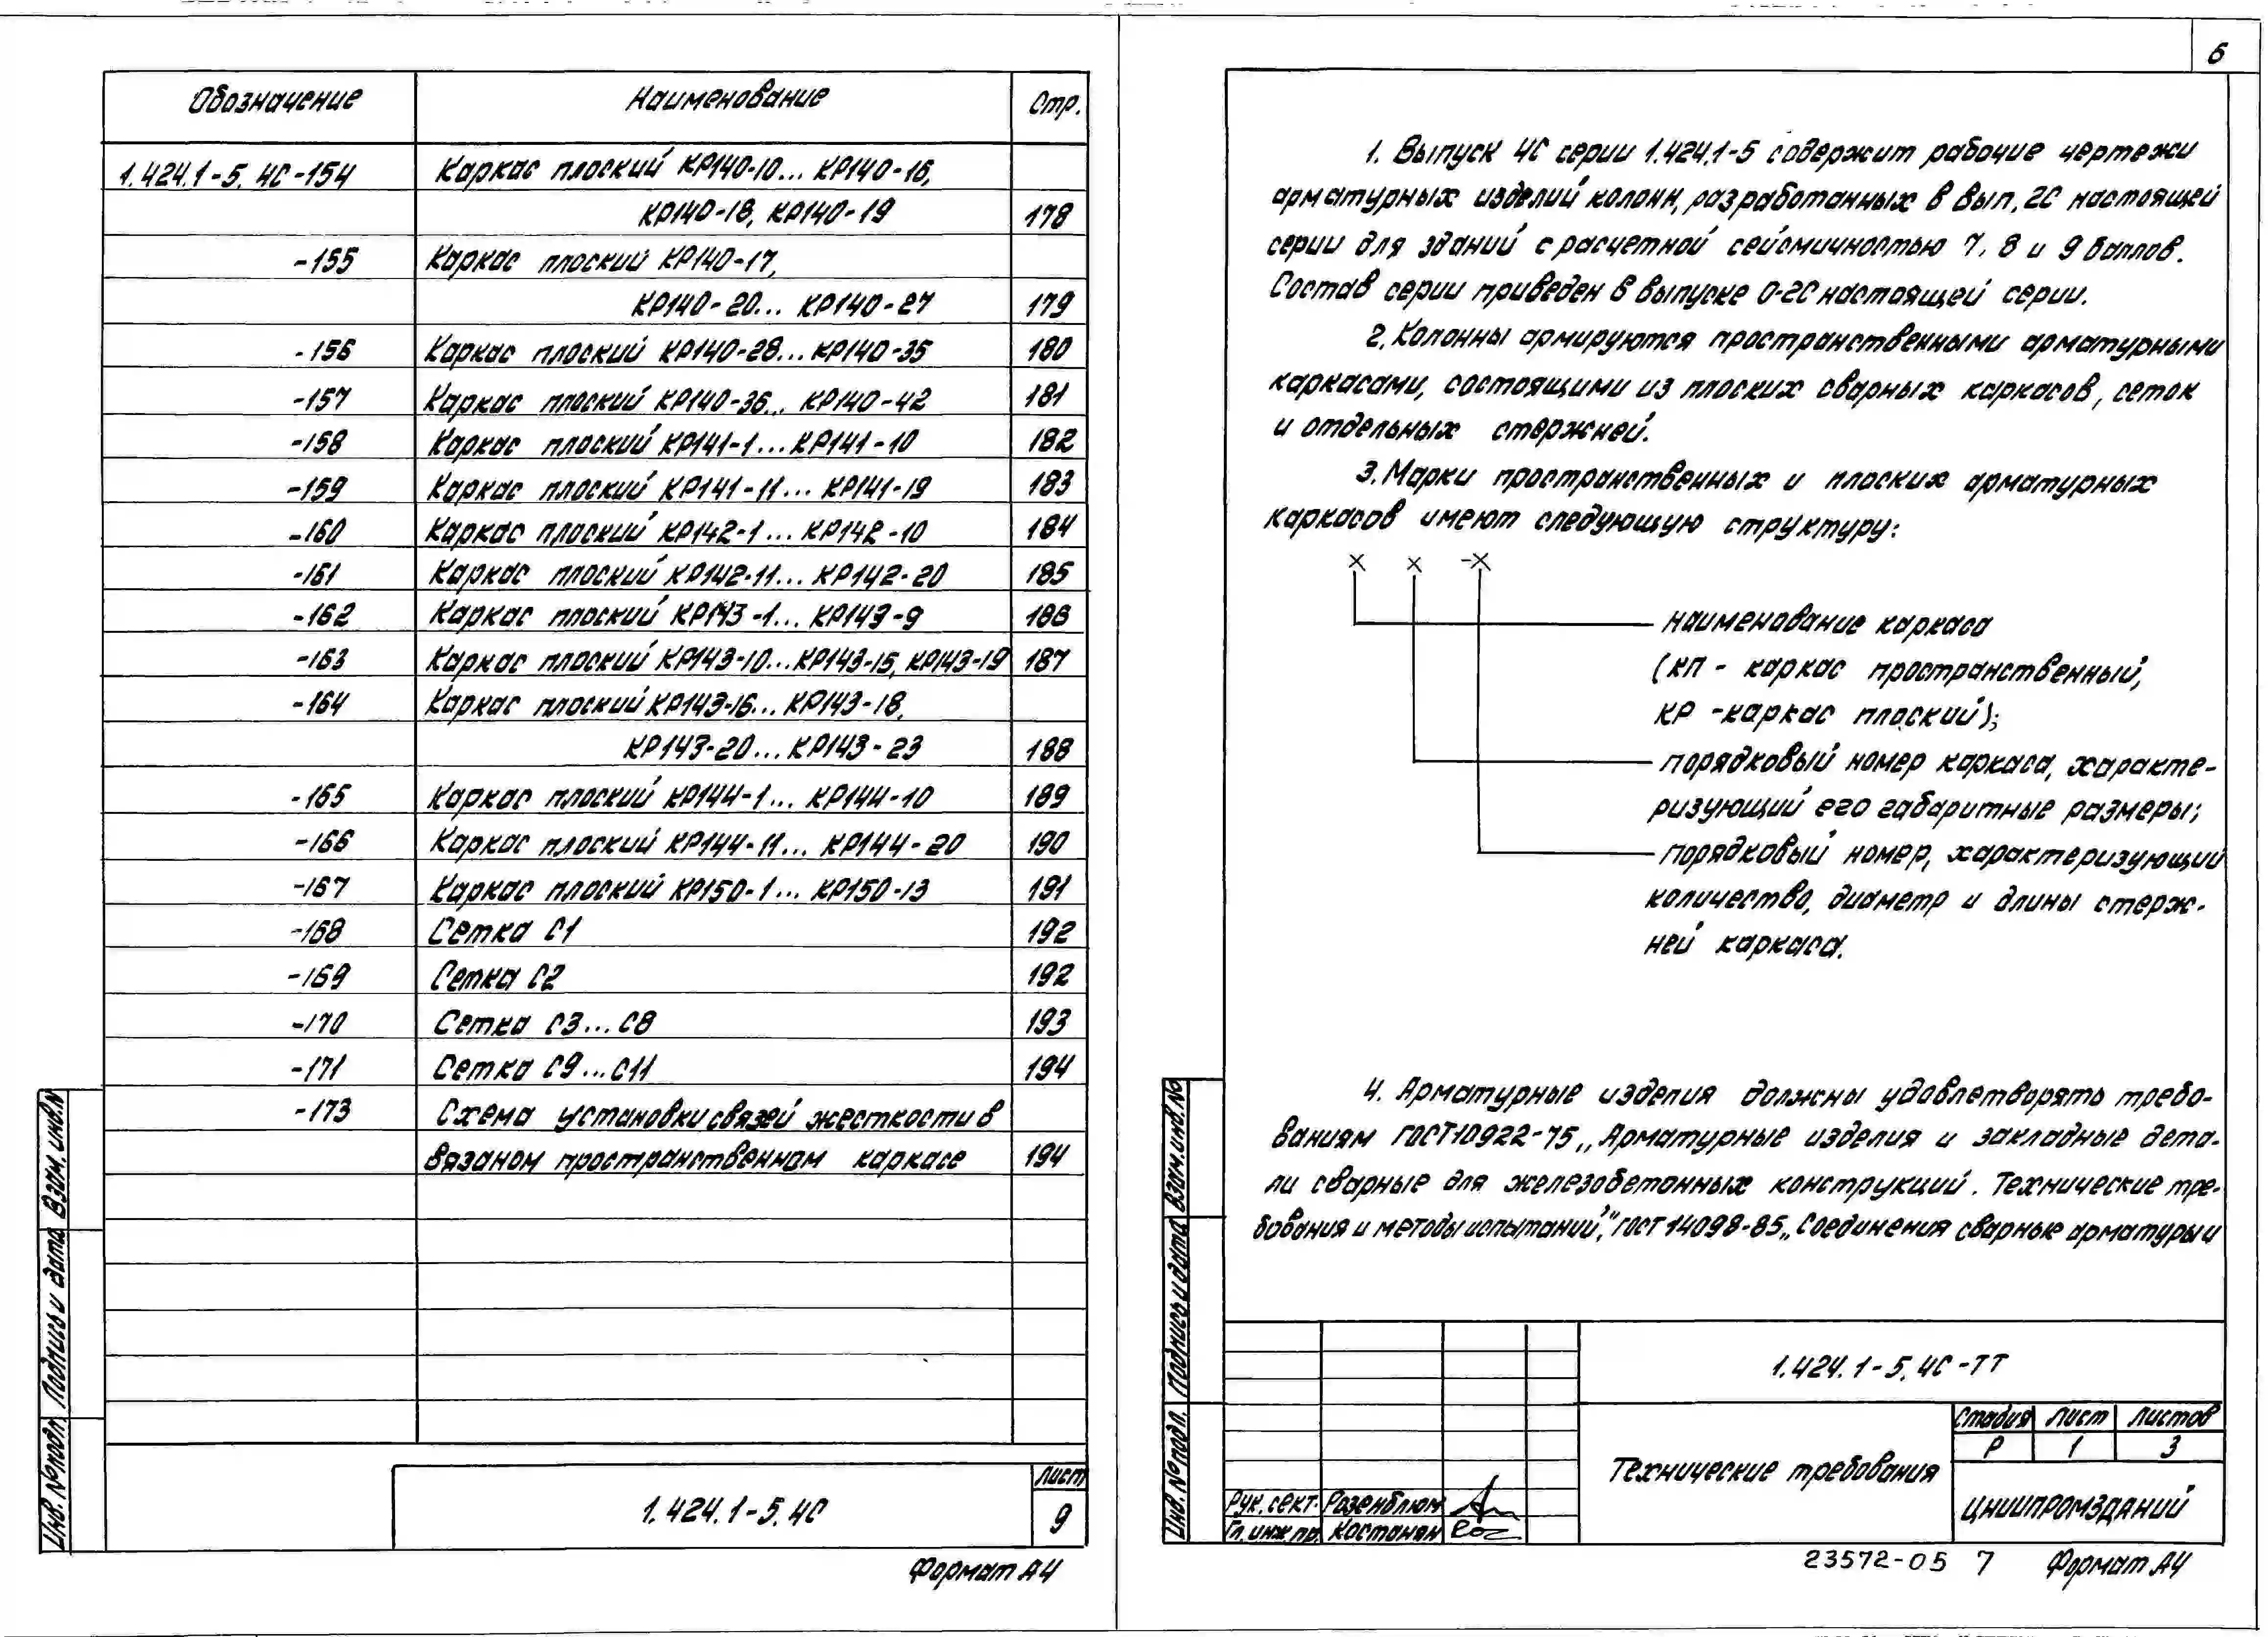 Обозначение Наименование Стр.
1.424.1-5.4С-154 Каркас плоский КР140-10... КР140-16,
КР140-18, КР140-19 178
-155 Каркас плоский КР140-17,
КР140-20... КР140-27 179
-156 Каркас плоский КР140-28... КР140-35 180
-157 Каркас плоский КР140-36... КР140-42 181
-158 Каркас плоский КР141-1... КР141-10 182
-159 Каркас плоский КР141-11... КР141-19 183
-160 Каркас плоский КР142-1... КР142-10 184
-161 Каркас плоский КР142-11... КР142-20 185
-162 Каркас плоский КР143-1... КР143-9 186
-163 Каркас плоский КР143-10...КР143-15, КР143-19 187
-164 Каркас плоский КР143-16... КР143-18,
КР143-20... КР143-23 188
-165 Каркас плоский КР144-1... КР144-10 189
-166 Каркас плоский КР144-11... КР144-20 190
-167 Каркас плоский КР150-1... КР150-13 191
-168 Сетка С1 192
-169 Сетка С2 192
-170 Сетка С3...С8 193
-171 Сетка С9...С11 194
-173 Схема установки связей жесткости в
вязаном пространственном каркасе 194
Взам. инв.№
Подпись и дата
Инв. № подл.
1.424.1-5.4С
Лист
9
Формат А4
6
1. Выпуск 4С серии 1.424.1-5 содержит рабочие чертежи
арматурных изделий колонн, разработанных в вып. 2С настоящей
серии для зданий с расчетной сейсмичностью 7, 8 и 9 баллов.
Состав серии приведен в выпуске 0-2С настоящей серии.
2. Колонны армируются пространственными арматурными
каркасами, состоящими из плоских сварных каркасов, сеток
и отдельных стержней.
3. Марки пространственных и плоских арматурных
каркасов имеют следующую структуру:
х х -х
наименование каркаса
(КП - каркас пространственный,
КР - каркас плоский);
порядковый номер каркаса, характе-
ризующий его габаритные размеры;
порядковый номер, характеризующий
количество, диаметр и длины стерж-
ней каркаса.
4. Арматурные изделия должны удовлетворять требо-
ваниям ГОСТ 10922-75 „Арматурные изделия и закладные дета-
ли сварные для железобетонных конструкций. Технические тре-
бования и методы испытаний", ГОСТ 14098-85 „Соединения сварные арматуры и
Взам. инв.№
Подпись и дата
Инв. № подл.
1.424.1-5.4С-ТТ
Стадия Лист Листов
Р 1 3
Технические требования
ЦНИИПРОМЗДАНИЙ
Рук. сект. Розенблюм
Гл. инж. пр. Костанян
23572-05 7 Формат А4